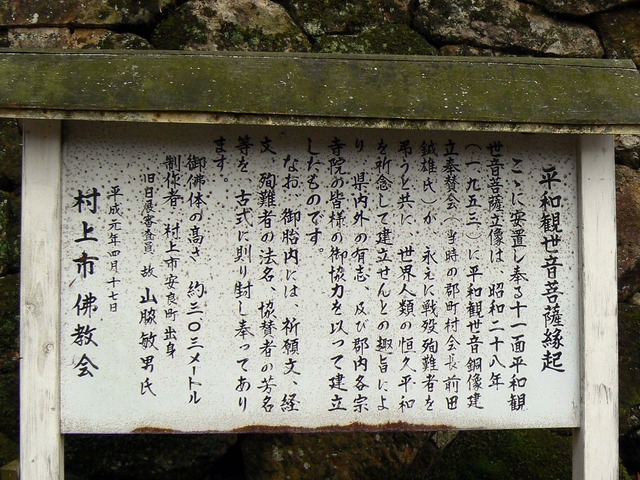 平和観世音菩薩縁起
こゝに安置し奉る十一面平和観
世音菩薩立像は、昭和二十八年
(一九五三)に平和観世音銅像建
立奉賛会(当時の郡町村会長前田
鉞雄氏)が、永えに戦殁殉難者を
弔うと共に、世界人類の恒久平和
を祈念して建立せんとの趣旨によ
り、県内外の有志、及び郡内各宗
寺院の皆様の御協力を以って建立
したものです。
なお、御胎内には、祈願文、経
文、殉難者の法名、協賛者の芳名
等を、古式に則り封し奉ってあり
ます。
御佛体の高さ 約三・〇三メートル
制作者、村上市安良町出身
旧日展審査員 故 山脇敏男氏
平成元年四月十七日
村上市佛教会